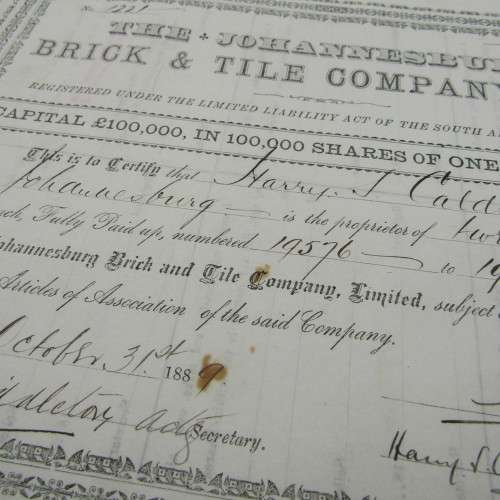 No. 1221
THE JOHANNESBU
BRICK & TILE COMPANY
REGISTERED UNDER THE LIMITED LIABILITY ACT OF THE SOUTH A
CAPITAL £100,000, IN 100,000 SHARES OF ONE
This is to Certify that Harry. S Cald
Johannesburg — is the proprietor of
ch, Fully Paid up, numbered 19576 — to 19
ohannesburg Brick and Tile Company, Limited, subject
Articles of Association of the said Company.
October. 31.st 1889.
Secretary.
Harry S. C